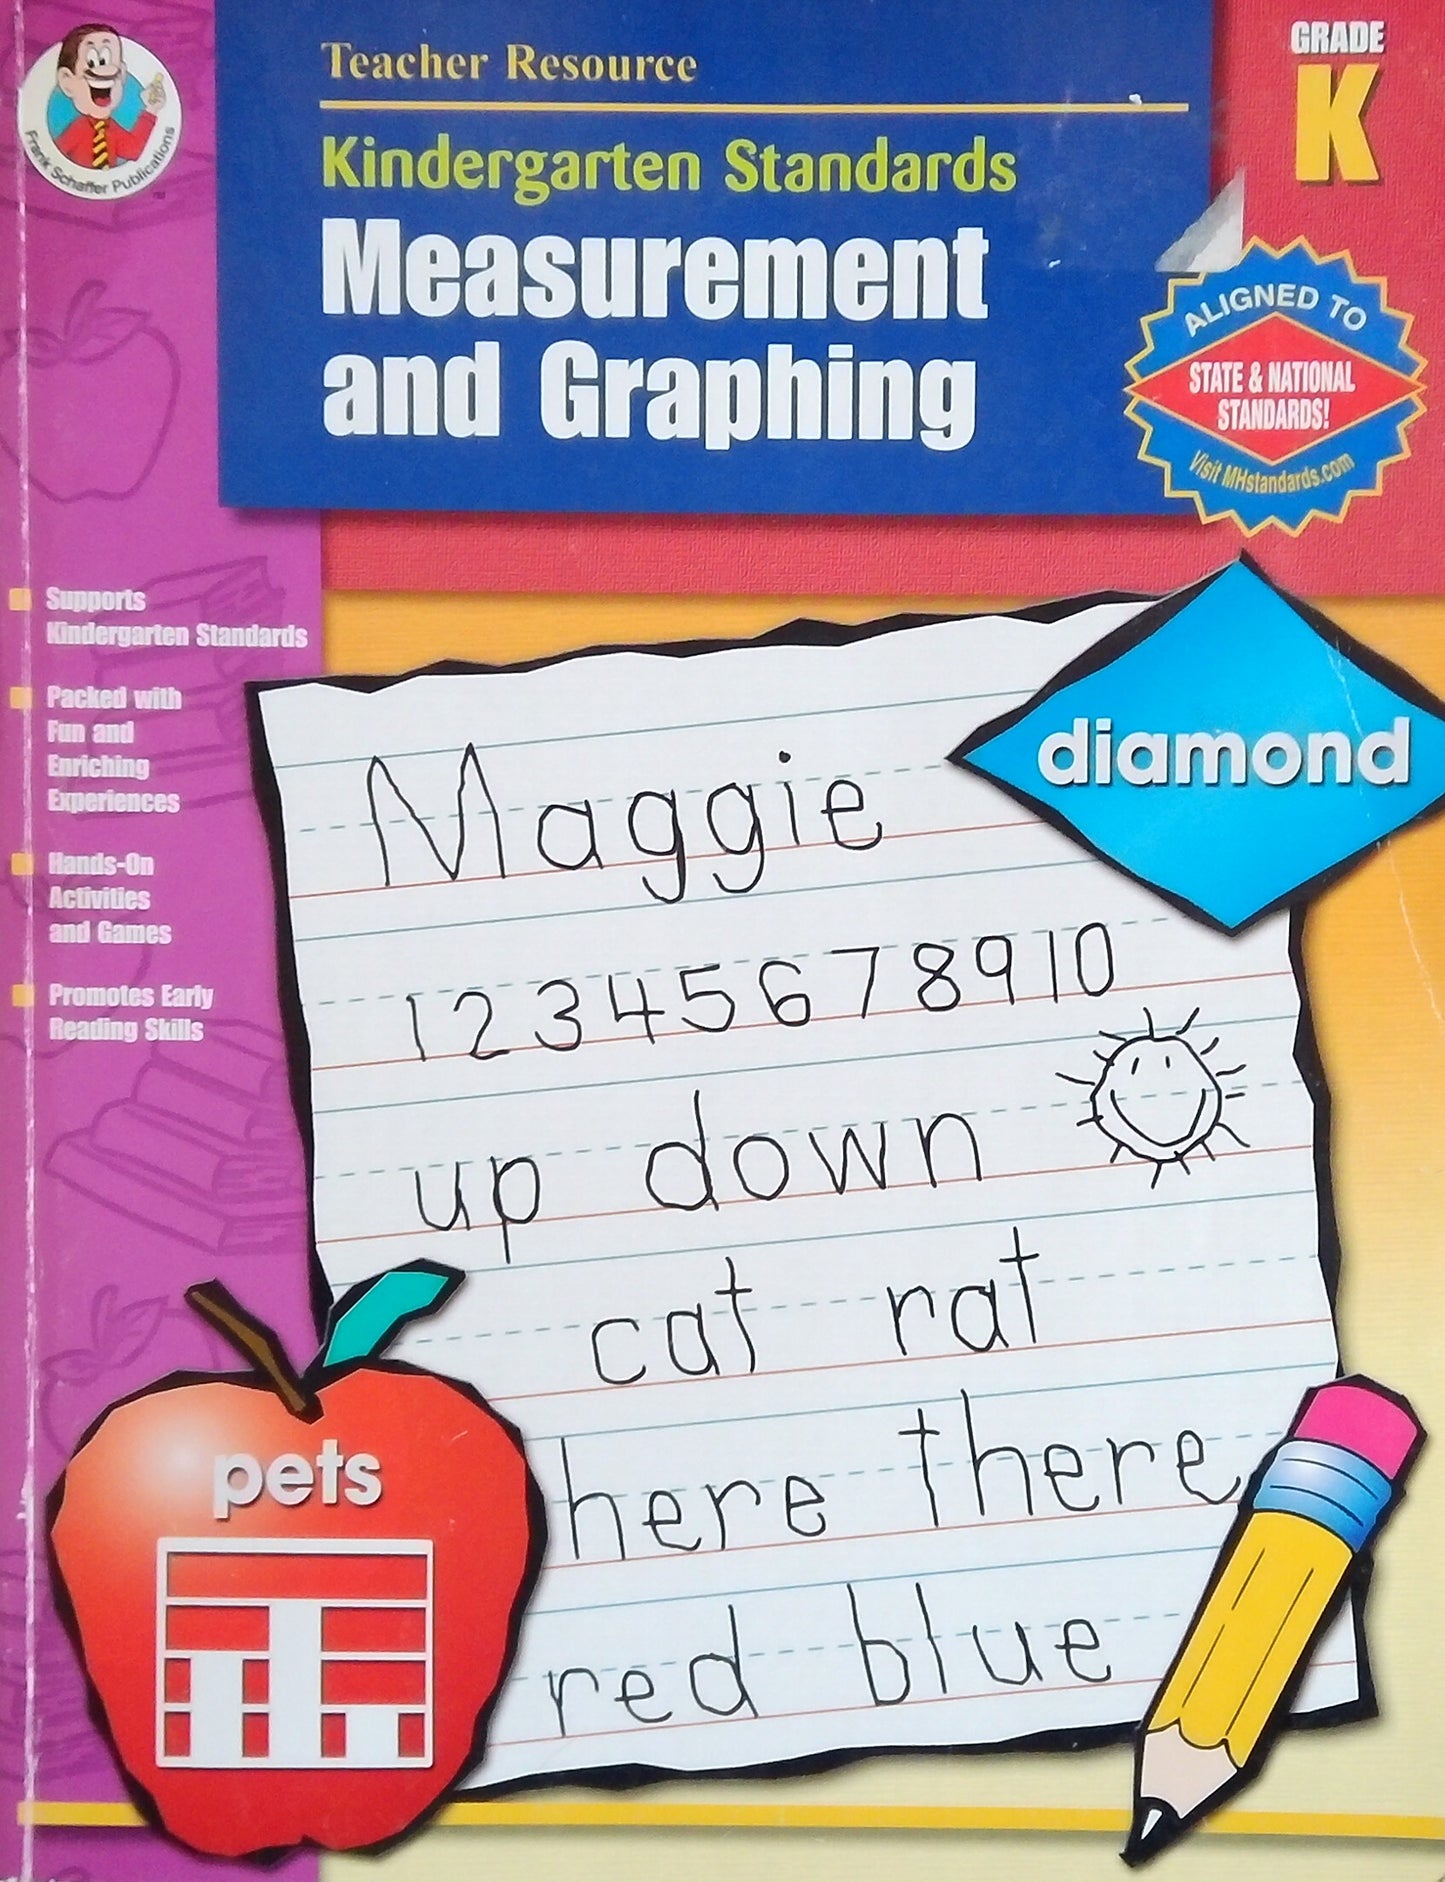 Frank Schaffer Publications
TM
Teacher Resource
GRADE
K
Kindergarten Standards
Measurement
and Graphing
ALIGNED TO
STATE & NATIONAL
STANDARDS!
Visit MHstandards.com
Supports
Kindergarten Standards
Packed with
Fun and
Enriching
Experiences
Hands-On
Activities
and Games
Promotes Early
Reading Skills
diamond
Maggie
1 2 3 4 5 6 7 8 9 10
up down
cat rat
here there
red blue
pets